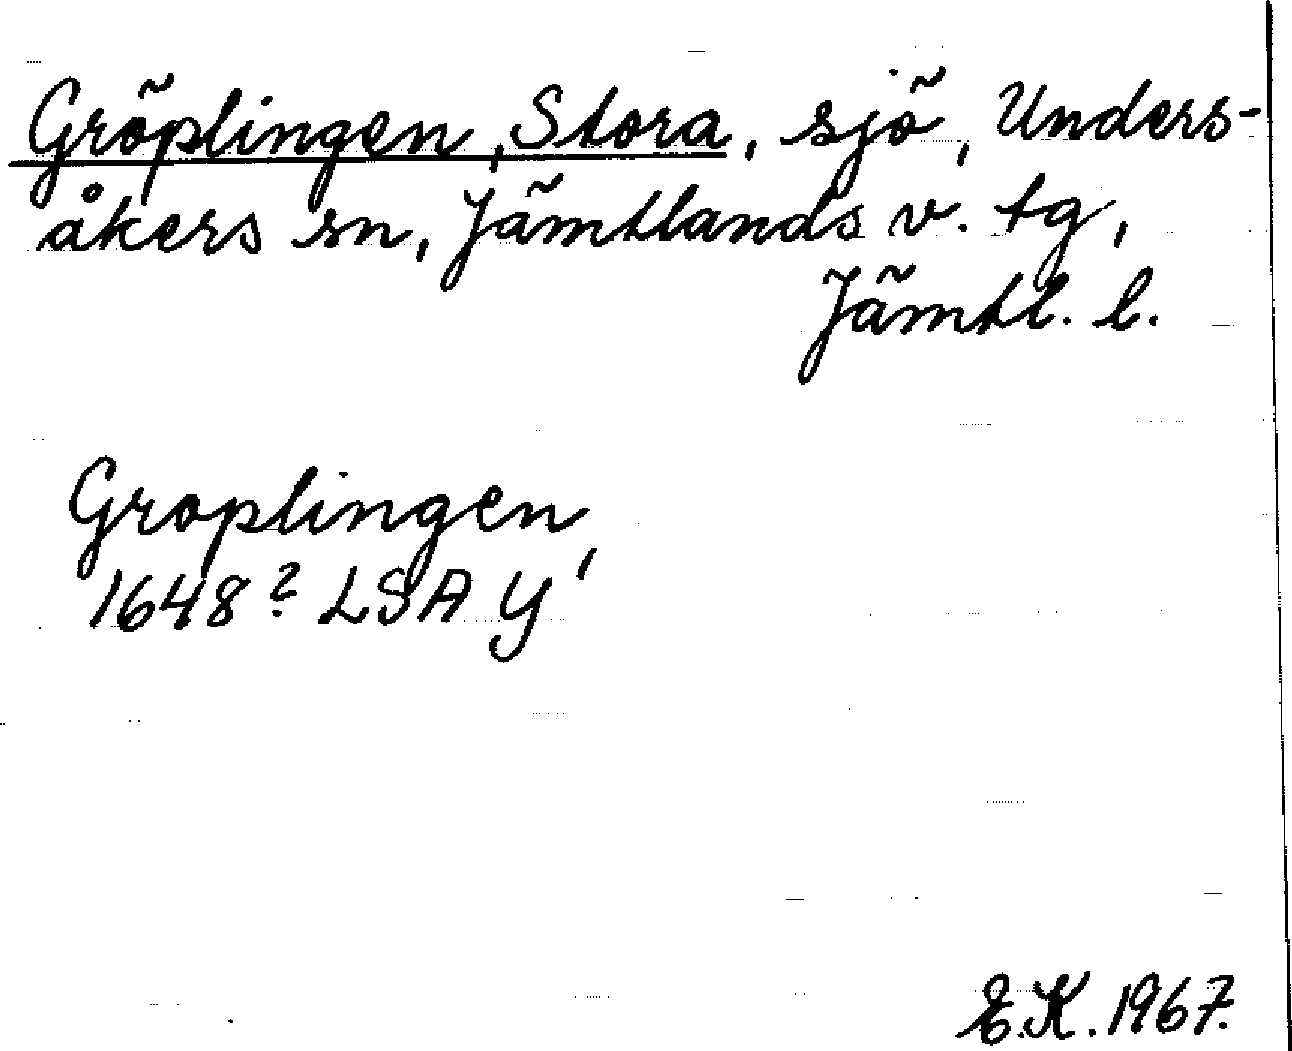 Gröplingen, Stora, sjö, Unders-
åkers sn, Jämtlands v. tg,
Jämtl. l.
Groplingen,
1648? LSA Y
E.K. 1967.